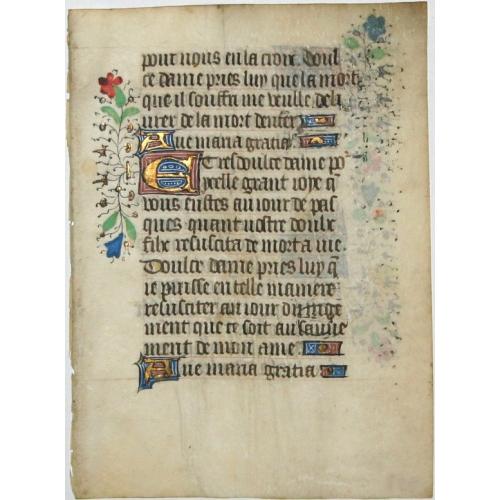 pour nous en la croix. Doul
ce dame pries luy que la mort
que il souffri me veulle deli
urer de la mort denfer
Aue maria gratia
Et tres doulce dame po
celle grant ioye q̄
vous eustes au iour de pas
ques quant uostre doulz
filz resuscita de mort a uie
Doulce dame pries luy q̄
ie puisse en telle maniere
resusciter au iour du iuge
ment que ce soit au sauue
ment de mon ame
Aue maria gratia